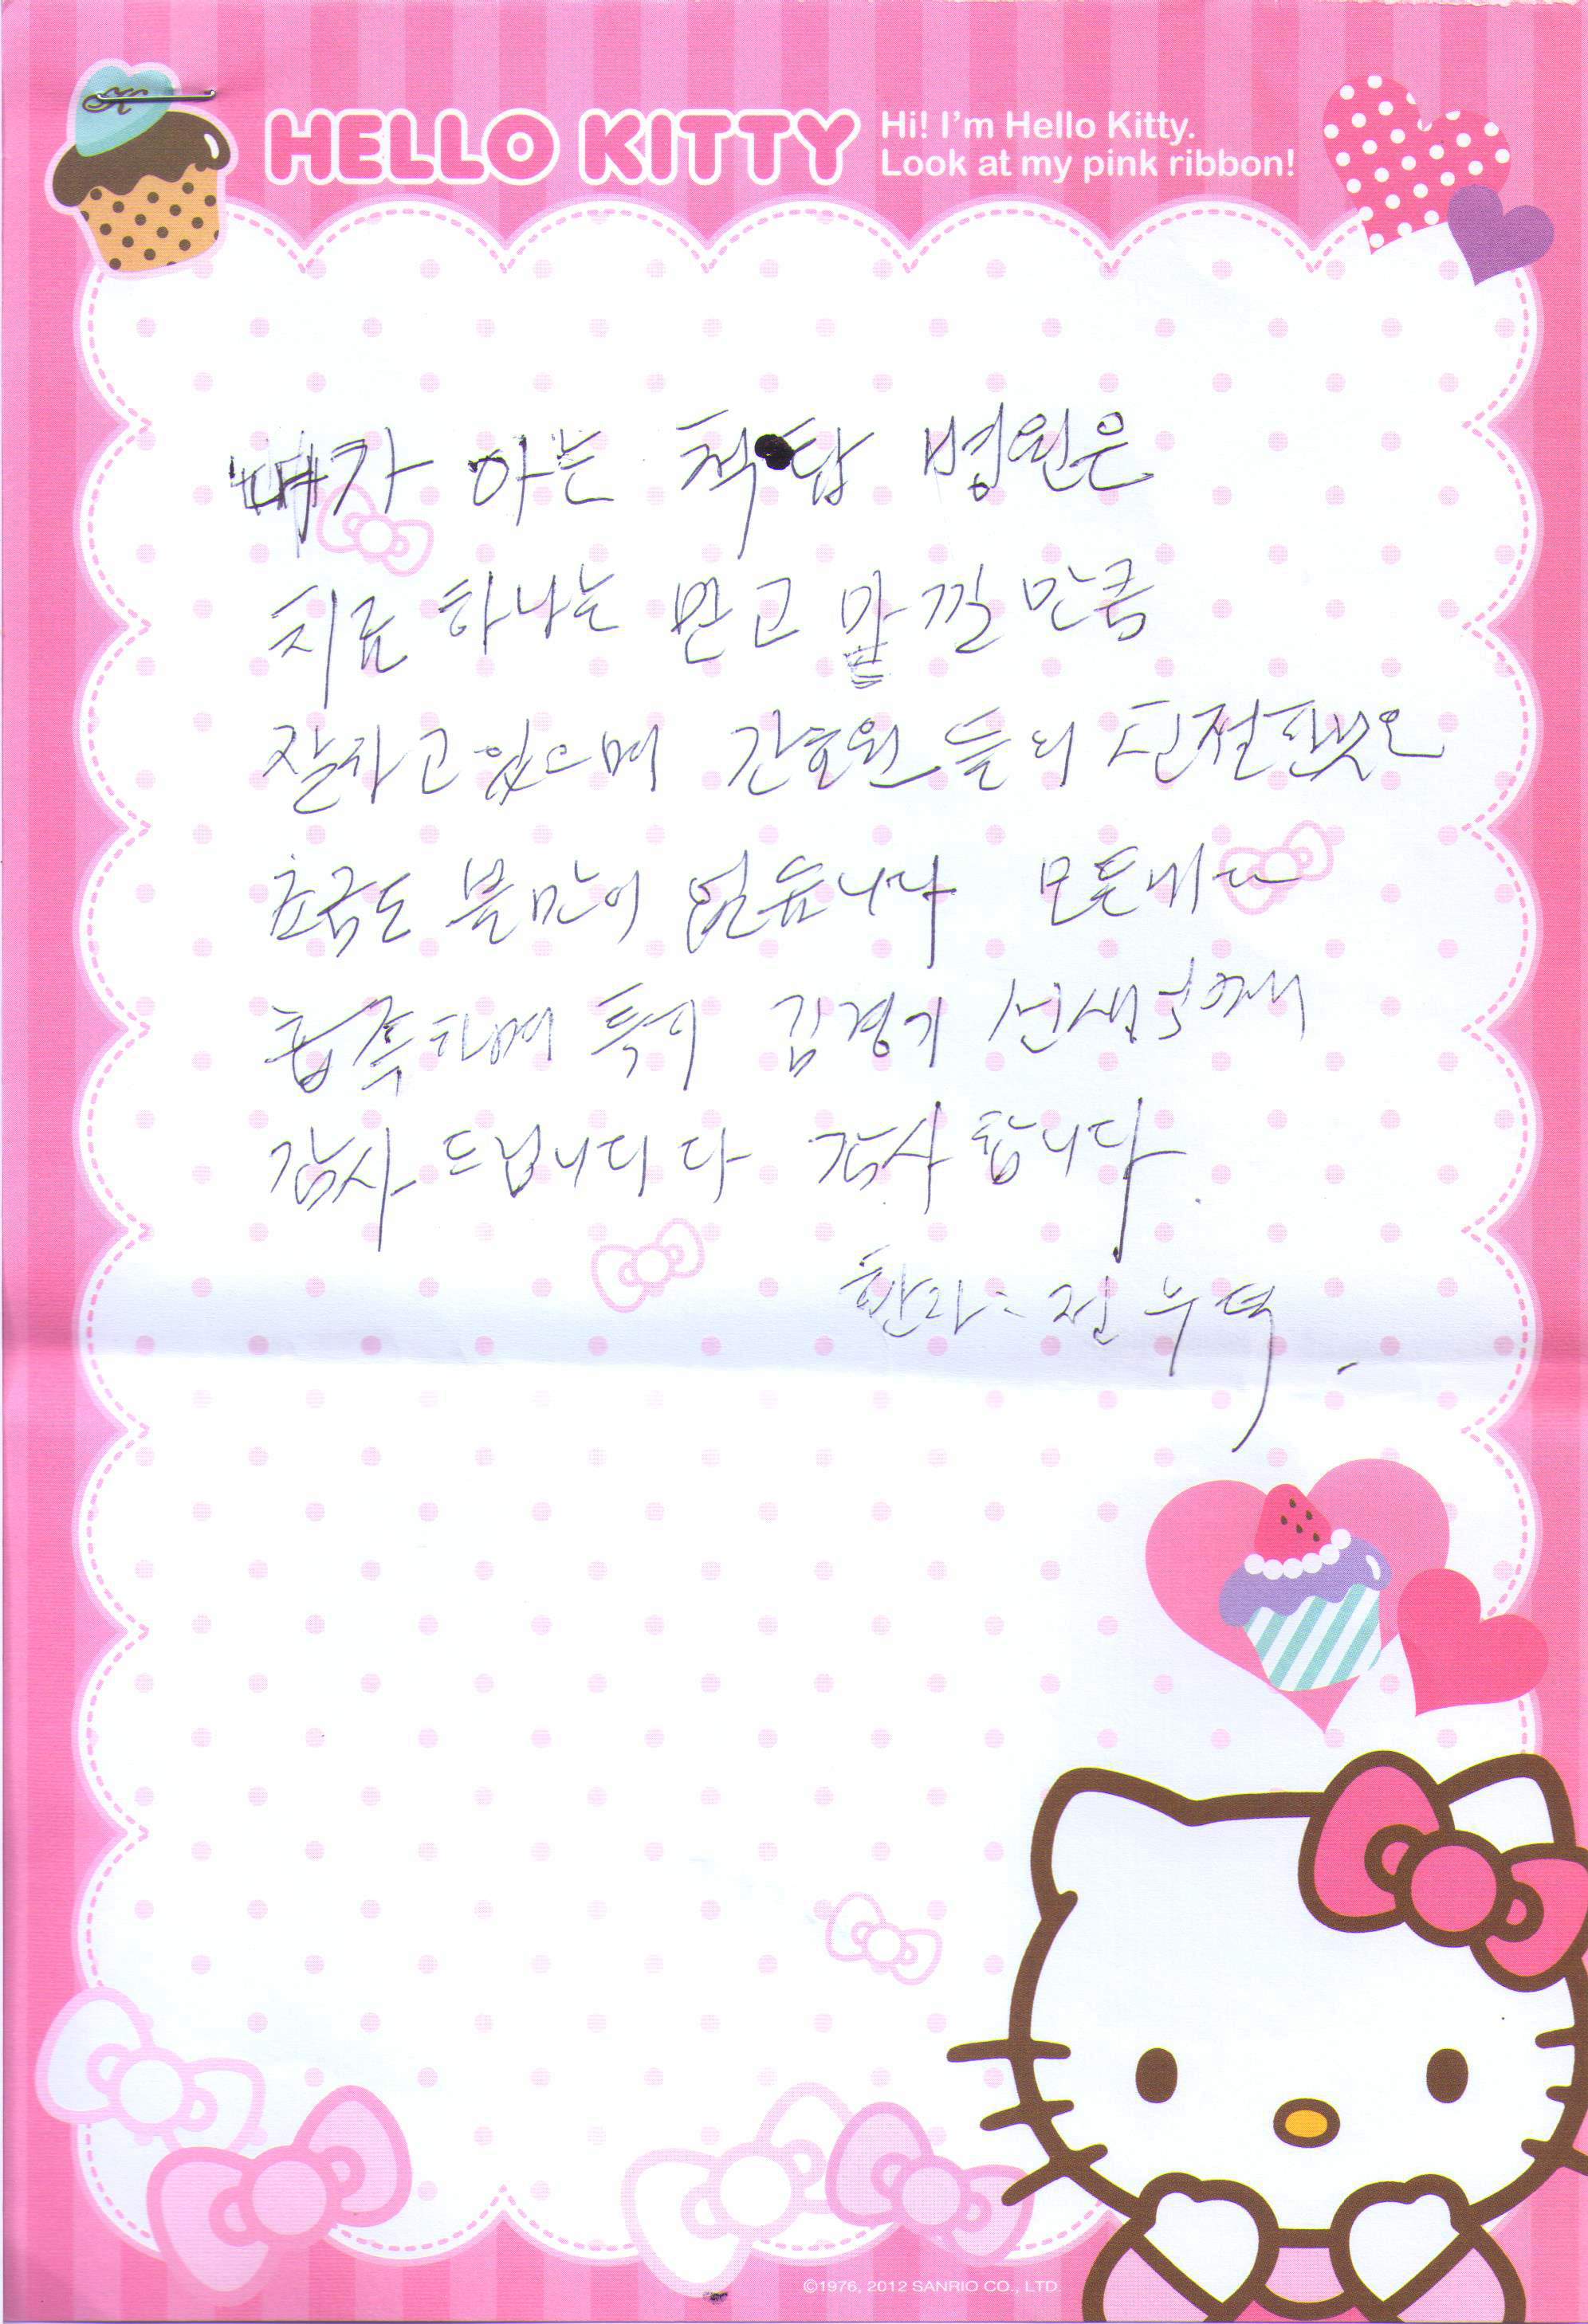 HELLO KITTY
Hi! I'm Hello Kitty.
Look at my pink ribbon!
내가 아는 척탑 병원은
치료 하나는 믿고 맡낄 만큼
잘하고 있으며 간호원들의
조금도 불만이 없읍니다
만족하며 특히 김경기 선생님께
감사 드립니다 감사합니다
환자: 전
©1976, 2012 SANRIO CO., LTD.